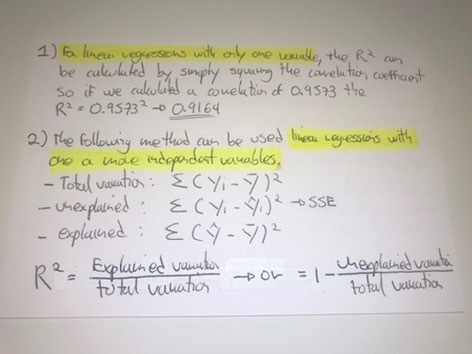 1) For linear regressions with only one variable, the R² can
be calculated by simply squaring the correlation coefficient
so if we calculated a correlation of 0.9573 the
R² = 0.9573² → 0.9164
2) The following method can be used linear regressions with
one or more independent variables.
- Total variation: Σ(Yi - Ȳ)²
- unexplained: Σ(Yi - Ŷi)² → SSE
- explained: Σ(Ŷ - Ȳ)²
R² = Explained variation / total variation → or = 1 - unexplained variation / total variation